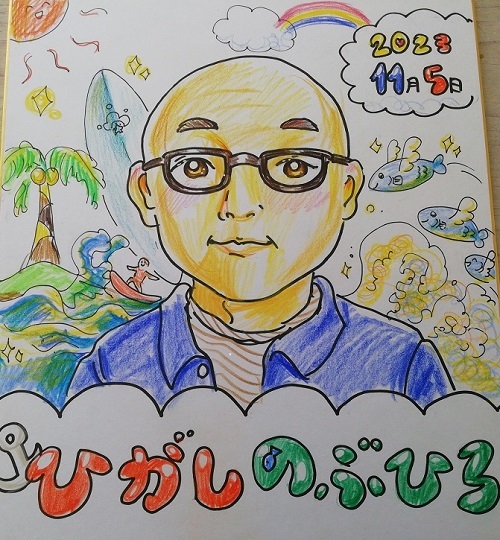 2023
11月5日
ひがしのぶひろ